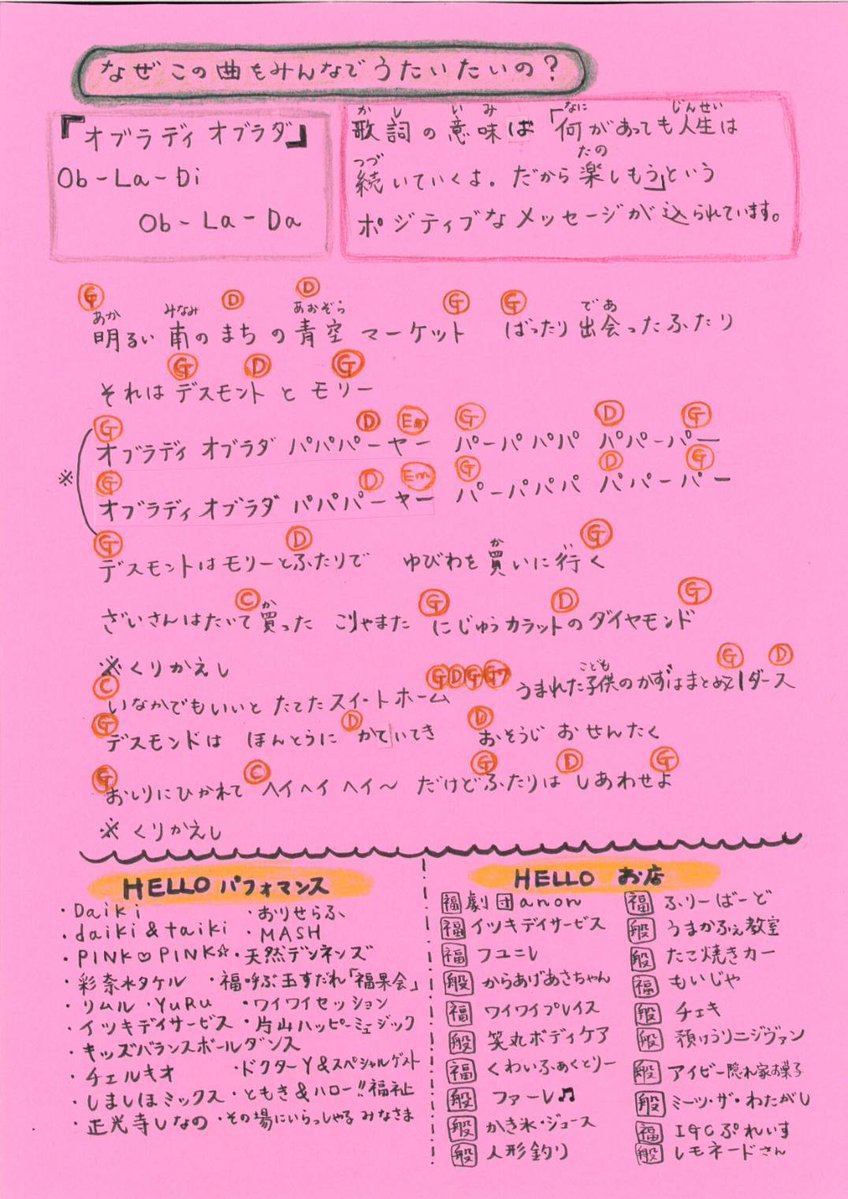 なぜこの曲をみんなでうたいたいの?
『オブラディ オブラダ』
Ob-La-Di
Ob-La-Da
かし いみ なに じんせい
歌詞の意味は「何があっても人生は
つづ たの
続いていくよ。だから楽しもう」という
ポジティブなメッセージが込られています。
G D D G G
あか みなみ あおぞら であ
明るい 南の まち の 青空 マーケット ばったり 出会ったふたり
G D G
それは デスモント と モリー
G D Em G D G
オブラディ オブラダ パパパーヤー パーパパパ パパーパー
※
G D Em G D G
オブラディ オブラダ パパパーヤー パーパパパ パパーパー
G D G
か
デスモントはモリーとふたりで ゆびわを 買いに 行く
C G D G
か
ざいさんはたいて 買った こりゃまた にじゅうカラットのダイヤモンド
※くりかえし
C G D G G7 G D
こども
いなかでもいいと たてたスイートホーム うまれた子供のかずはまとめて1ダース
G D D
デスモンドは ほんとうに かていてき おそうじ おせんたく
G C G D G
おしりにひかれて ヘイヘイ ヘイ〜 だけどふたりは しあわせよ
※ くりかえし
HELLO パフォマンス
・Daiki ・おりせらふ
・daiki & taiki ・MASH
・PINK♡PINK☆ ・天然デンネンズ
・彩奈水タケル ・福呼ぶ玉すだれ「福果会」
・リムル ・YuRu ・ワイワイセッション
・イツキデイサービス ・片山ハッピーミュージック
・キッズバランスボールダンス
・チェルキオ ・ドクターY&スペシャルゲスト
・しましほミックス ・ともき&ハロー!!福祉
・正光寺しなの ・その場にいらっしゃる みなさま
HELLO お店
福 劇団anon
福 イツキデイサービス
福 フユニレ
般 からあげあさちゃん
福 ワイワイプレイス
般 笑丸ボディケア
福 くわいふぁくとりー
般 ファーレ♫
般 かき氷・ジュース
般 人形釣り
福 ふりーばーど
般 うまかふぇ教室
般 たこ焼きカー
福 もいじゃ
般 チェキ
般
般 アイビー隠れ家お菓子
般 ミーツ・ザ・わたがし
福 IGCぷれいす
般 レモネードさん